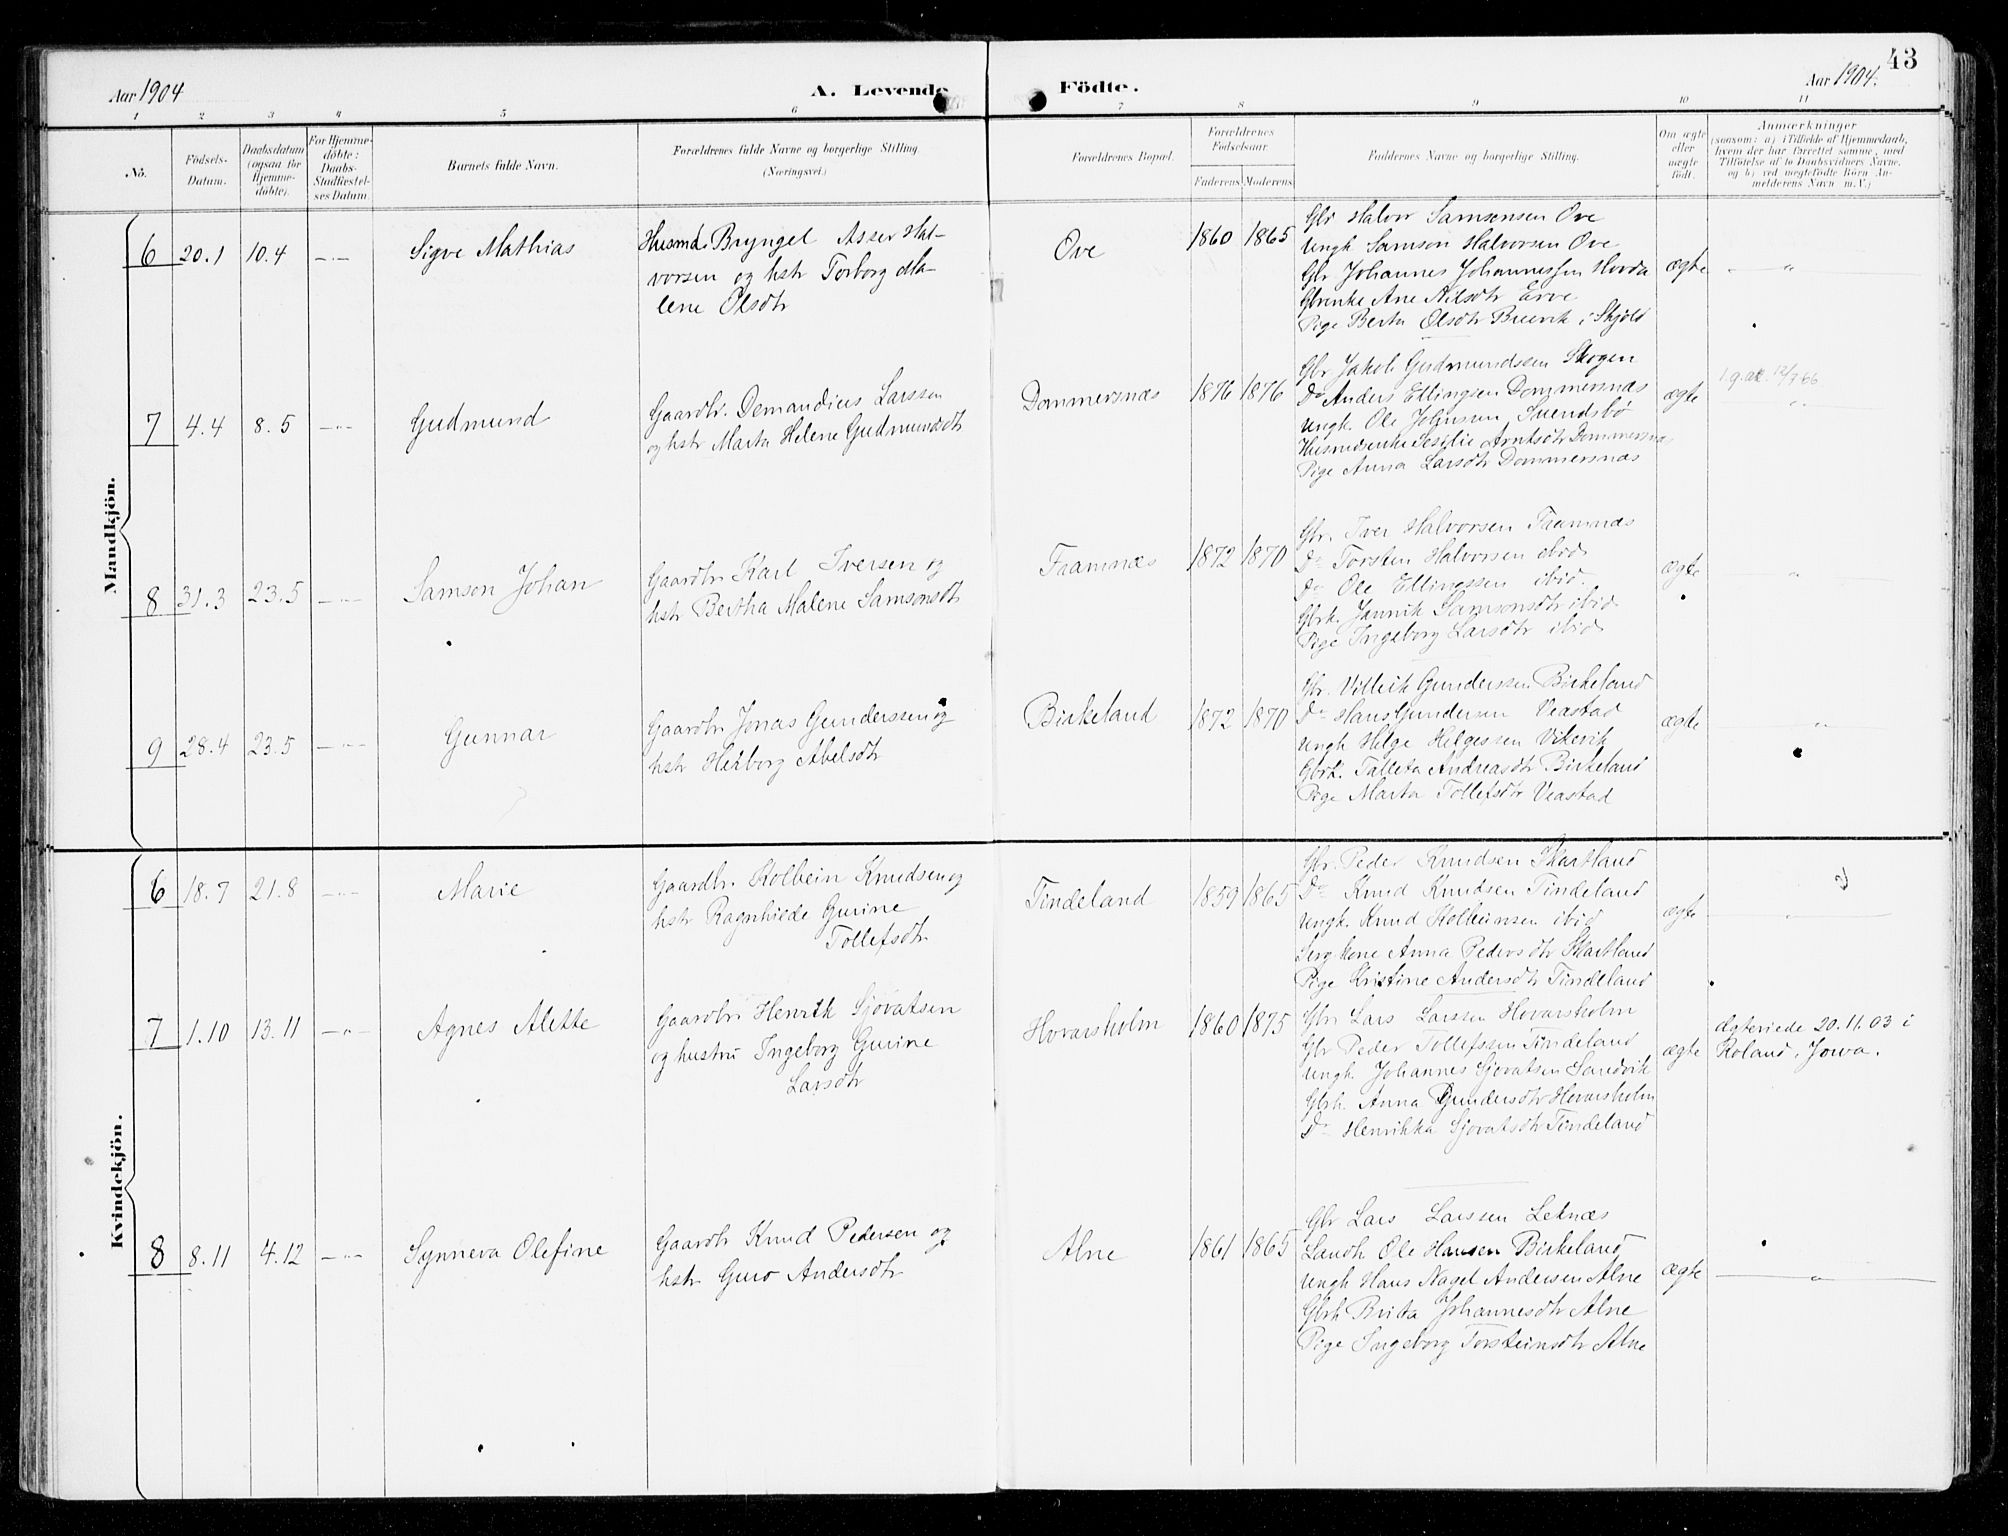 Aar 1904
A. Levende Födte.
Aar 1904.
43
1 2 3 4 5 6 7 8 9 10 11
No.
Födsels-Datum.
Daabsdatum (ogsaa för Hjemme-döbte).
For Hjemme-döbte: Daabs-Stadfæstel-ses Datum.
Barnets fulde Navn.
Forældrenes fulde Navne og borgerlige Stilling.
(Næringsvei.)
Forældrenes Bopæl.
Forældrenes Födselsaar.
Faderens. Moderens.
Faddernes Navne og borgerlige Stilling.
Om ægte eller uægte födt.
Anmærkninger
(saasom: a) i Tilfælde af Hjemmedaab,
hvem der har forrettet samme, med
Tilföielse af to Daabsvidners Navne,
og b) ved uægtefödte Börn An-
melderens Navn m. V.;)
Mandkjön.
6 20.1 10.4 -"- Sigve Mathias
Husmd. Bryngel Asser Hal-
vorsen og hstr Torborg Ma-
lene Olsdtr
Ove 1860 1865
Gbr Halvor Samsonsen Ove
Ungk Samson Halvorsen Ove
Gbr. Johannes Johannessen Hovda
Gbrenke Ane Nilsdtr Erve
Pige Berta Olsdtr Buevik i Skjold
ægte -"-
7 4.4 8.5 -"- Gudmund
Gaardbr. Demandius Larssen
og hstr Marta Helene Gudmundsdtr
Dommersnæs 1876 1876
Gbr Jakob Gudmundssen Skogen
Do Anders Ellingsen Dommersnæs
Ungk. Ole Johnsen Svendsbö
Husmdsenke Sesilie Arntsdtr Dommersnæs
Pige Anna Larsdtr Dommersnæs
ægte
l.g.att. 12/7 66
"
8 31.3 23.5 -"- Samson Johan
Gaardbr Karl Iversen og
hstr Bertha Malene Samsonsdtr
Framnæs 1872 1870
Gbr. Iver Halvorsen Framnæs
Do Torsten Halvorsen ibid
Do Ole Ellingssen ibid.
Gbrk. Jannik Samsonsdtr ibid
Pige Ingeborg Larsdtr ibid
ægte "
9 28.4 23.5 -"- Gunnar
Gaardbr Jonas Gunderssen og
hstr Herborg Abelsdtr
Birkeland 1872 1870
Gbr. Villeik Gunderssen Birkeland
Do Hans Gundersen Veastad
Ungk Helge Helgessen Vikevik
Gbrk. Talleta Andreasdtr Birkeland
Pige Marta Tollefsdtr Veastad
ægte "
Kvindekjön.
6 18.7 21.8 -"- Marie
Gaardbr. Kolbein Knudsen og
hstr Ragnhilde Gurine
Tollefsdtr
Tindeland 1859 1865
Gbr. Peder Knudsen Skartland
Do Knud Knudsen Tindeland
Ungk. Knud Kolbeinsen ibid
Serg. kone Anna Pedersdtr Skartland
Pige Kristine Andersdtr Tindeland
ægte "
7 1.10 13.11 -"- Agnes Alette
Gaardbr Henrik Sjovatsen
og hustru Ingeborg Gurine
Larsdtr
Hovarsholm 1860 1875
Gbr Lars Larssen Hovarsholm
Gbr Peder Tollefssen Tindeland
Ungk. Johannes Sjovatsen Sandvik
Gbrk. Anna Gundersdtr Hovarsholm
Do Henrikka Sjovatsdtr Tindeland
ægte
Ægteviede 20.11.03 i
Roland, Jowa.
8 8.11 4.12 -"- Synneva Olefine
Gaardbr Knud Pedersen og
hstr Guro Andersdtr
Alne 1861 1865
Gbr Lars Larssen Leknæs
Landh Ole Hansen Birkeland
Ungk Hans Nagel Andersen Alne
Gbrk Brita Johannesdtr Alne
Pige Ingeborg Torsteinsdtr Alne
ægte "